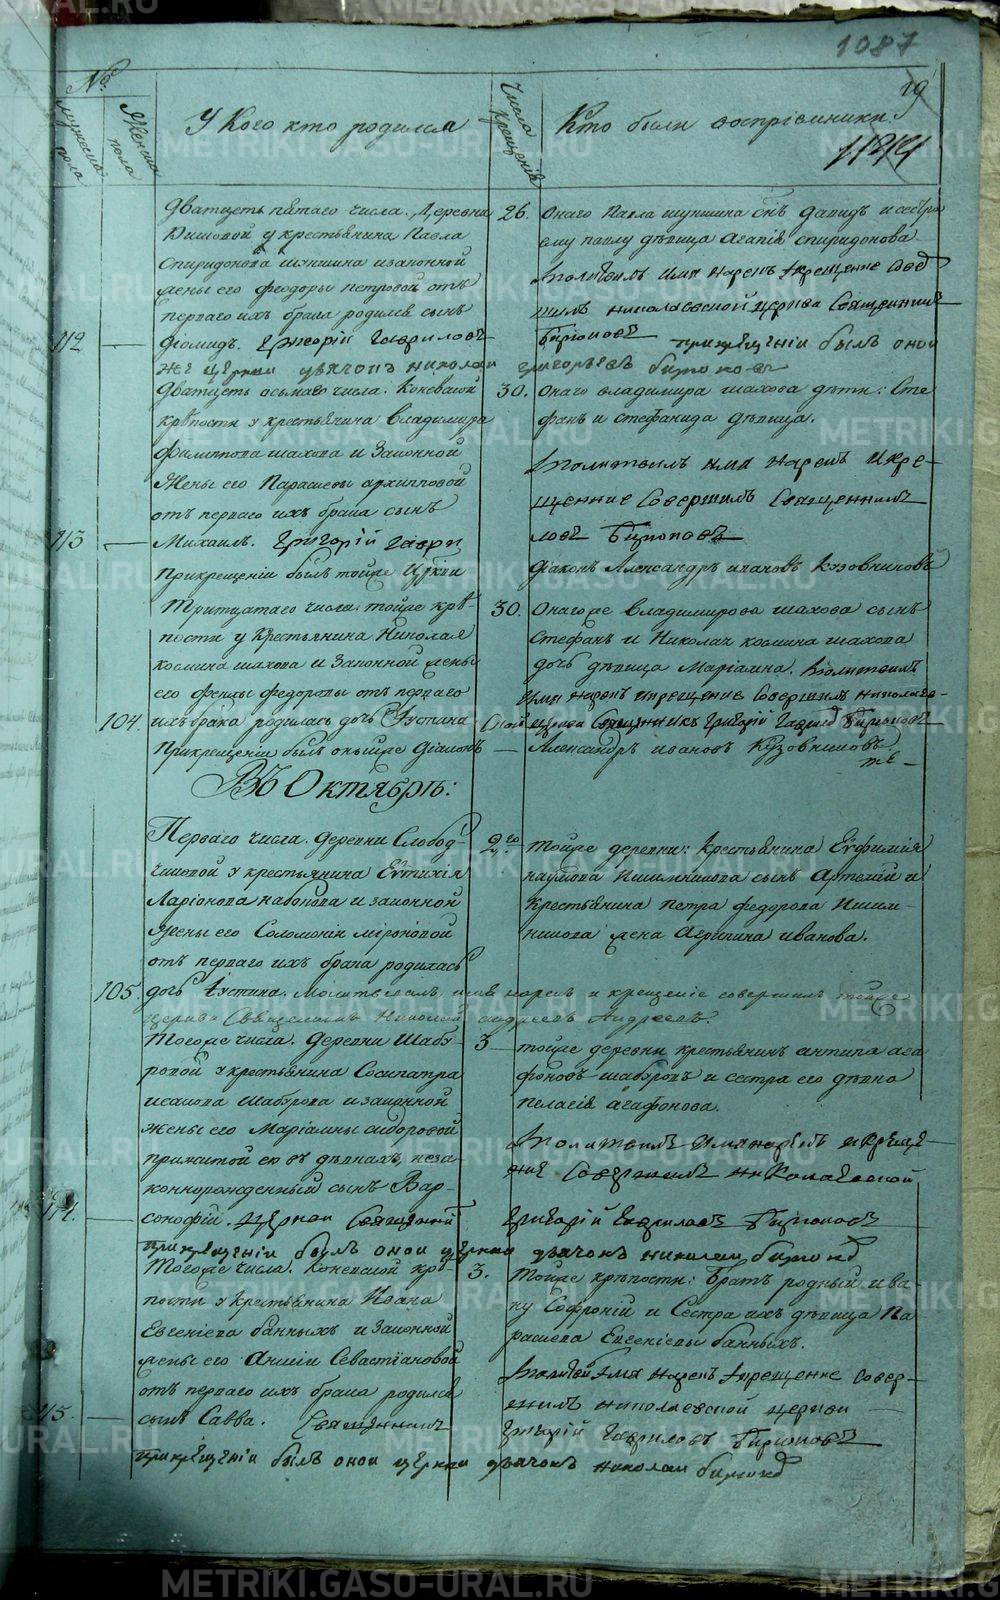 1087
19
1121
№
Мужеска пола
Женска пола
У Кого кто родился
Числа Крещенія
Кто были воспріемники
Дватцеть пятаго числа. Деревни
Кишовой у крестьянина Павла
Спиридонова шуншина и законной
жены его Феодоры петровой отъ
перваго ихъ брака родился сынъ
112 — Діомидъ. Григорій Гавриловъ
же церкви дьячокъ николаи
26. онаго Павла шуншина сынъ давидъ и сестра
ему павлу дѣвица Агапія спиридонова
молитвилъ имя нарекъ и крещение совер
шилъ николаевской церкви Священникъ
Бирюковъ прикрещеніи былъ оной
григорьевъ бирюковъ
Дватцеть осьмаго числа. Коневской
крѣпости у крестьянина владимира
Филиппова шахова и Законной
Жены его Парасковьи архипповой
отъ перваго ихъ брака сынъ
113 — Михаилъ. Григорій Гаври
Прикрещеніи былъ тойже Церкви
30. онаго владимира шахова дѣти: Сте
фанъ и стефанида дѣвица.
молитвилъ имя нарекъ и кре-
щение Совершилъ Священникъ
ловъ Бирюковъ
діаконъ Александръ ивановъ Кузовниковъ
Тритцатаго числа тойже крѣ-
пости у Крестьянина Николая
космина шахова и Законной жены
его Феклы федоровы отъ перваго
104. ихъ брака родилась дочь Іустина
Прикрещеніи былъ оныйже діаконъ
30. Онагоже владимирова шахова сынъ
Стефанъ и Николая космина шахова
дочь дѣвица Маріамна. молитвилъ
Имя нарекъ икрещение Совершилъ николаев-
ской церкви Священникъ григорій Гаврилов Бирюковъ
— Александръ ивановъ Кузовниковъ.
Въ Октябрѣ:
Перваго числа. деревни Слобод-
чиковой у крестьянина Евтихія
Ларіонова набокова и законной
Жены его Соломоніи міроновой
отъ перваго ихъ брака родилась
105. дочь Іустина. Молитвилъ имя нарекъ и крещеніе совершилъ тойже
церкви Священникъ Николай андреевъ Андреевъ.
2го тойже деревни: Крестьянина Евфимія
наумова Ишимникова сынъ Артемій и
Крестьянина петра федорова Ишим-
никова жена Агрипина иванова.
Тогоже числа. деревни Шабу-
ровой у крестьянина Сосипатра
исакова Шабурова и законной
жены его Маріамны сидоровой
прижитой ею въ дѣвкахъ неза-
коннорожденный сынъ Вар-
114. — сонофій. Церкви Священникъ
прикрещеніи былъ оной церкви дьячокъ николаи бирюко
3 тойже деревни крестьянинъ антипа ага
фоновъ шабуровъ и сестра его дѣвка
пелагія агафонова.
молитвилъ имянарекъ и креще-
ние Совершилъ николаевской
григорій Гавриловъ Бирюковъ
Тогоже числа. Коневской крѣ-
пости у крестьянина Ивана
Евгеніева банныхъ и Законной
жены его Анисіи Севастіановой
отъ перваго ихъ брака родился
115. — сынъ Савва. Священникъ
прикрещеніи былъ оной церкви дьячокъ николаи бирюко
3. Тойже крѣпости: братъ родный ива
ну Софроній и Сестра ихъ дѣвица Па
раскева Евгеніевы банныхъ.
молитвой имя нарекъ и крещение Совер-
шилъ николаевской церкви
григорій Гавриловъ Бирюковъ
METRIKI.GASO-URAL.RU